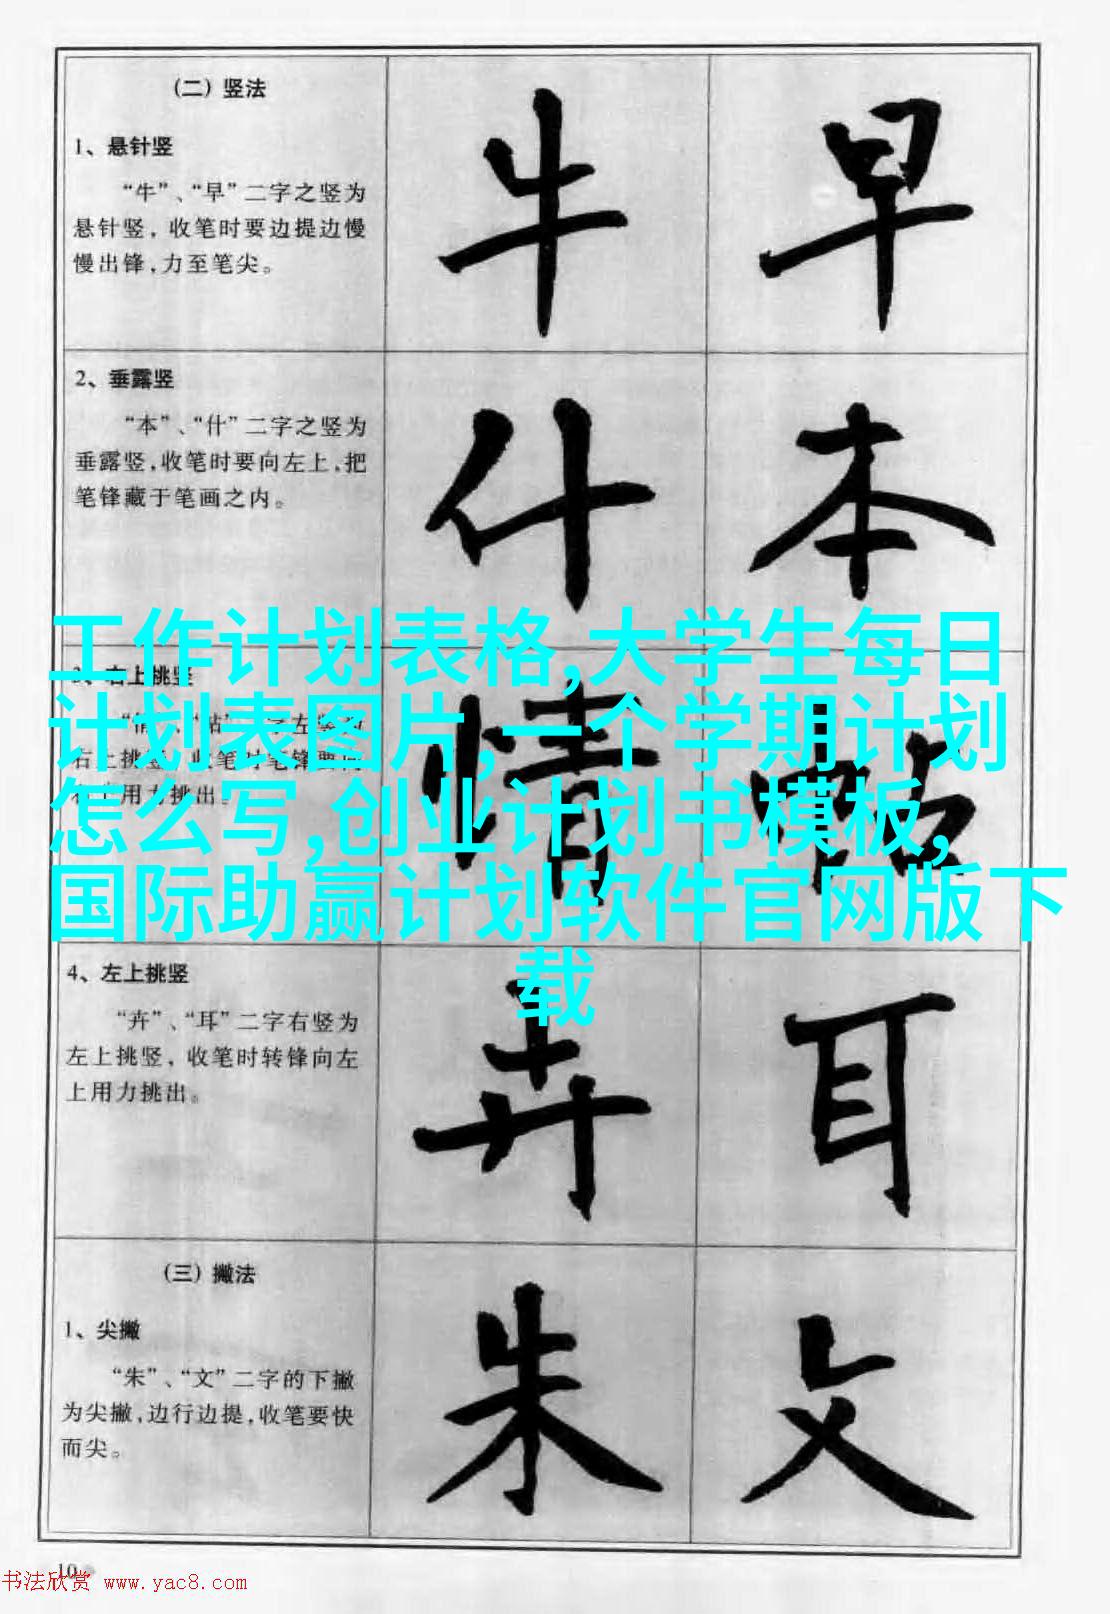 （二）竖法
1、悬针竖
“牛”、“早”二字之竖为
悬针竖，收笔时要边提边慢
慢出锋，力至笔尖。
牛 早
2、垂露竖
“本”、“什”二字之竖为
垂露竖，收笔时要向左上，把
笔锋藏于笔画之内。
什 本
工作计划表格,大学生每日
计划表图片,一个学期计划
怎么写,创业计划书模板,
国际助赢计划软件官网版下
载
右上挑竖
用力挑出。
情
4、左上挑竖
“卉”、“耳”二字右竖为
左上挑竖，收笔时转锋向左
上用力挑出。
卉 耳
（三）撇法
1、尖撇
“朱”、“文”二字的下撇
为尖撇，边行边提，收笔要快
而尖。
朱 文
10
书法欣赏 www.yac8.com